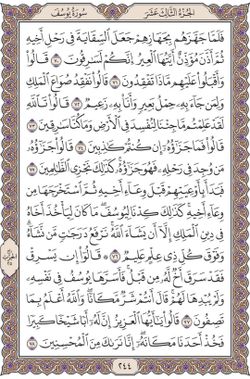 الجزء الثالث عشر سورة يوسف
فَلَمَّا جَهَّزَهُم بِجَهَازِهِمْ جَعَلَ ٱلسِّقَايَةَ فِى رَحْلِ أَخِيهِ
ثُمَّ أَذَّنَ مُؤَذِّنٌ أَيَّتُهَا ٱلْعِيرُ إِنَّكُمْ لَسَٰرِقُونَ ٧٠ قَالُوا۟
وَأَقْبَلُوا۟ عَلَيْهِم مَّاذَا تَفْقِدُونَ ٧١ قَالُوا۟ نَفْقِدُ صُوَاعَ ٱلْمَلِكِ
وَلِمَن جَآءَ بِهِۦ حِمْلُ بَعِيرٍ وَأَنَا۠ بِهِۦ زَعِيمٌ ٧٢ قَالُوا۟ تَٱللَّهِ
لَقَدْ عَلِمْتُم مَّا جِئْنَا لِنُفْسِدَ فِى ٱلْأَرْضِ وَمَا كُنَّا سَٰرِقِينَ ٧٣
قَالُوا۟ فَمَا جَزَٰٓؤُهُۥٓ إِن كُنتُمْ كَٰذِبِينَ ٧٤ قَالُوا۟ جَزَٰٓؤُهُۥ
مَن وُجِدَ فِى رَحْلِهِۦ فَهُوَ جَزَٰٓؤُهُۥ كَذَٰلِكَ نَجْزِى ٱلظَّٰلِمِينَ ٧٥
فَبَدَأَ بِأَوْعِيَتِهِمْ قَبْلَ وِعَآءِ أَخِيهِ ثُمَّ ٱسْتَخْرَجَهَا مِن
وِعَآءِ أَخِيهِ كَذَٰلِكَ كِدْنَا لِيُوسُفَ مَا كَانَ لِيَأْخُذَ أَخَاهُ
فِى دِينِ ٱلْمَلِكِ إِلَّآ أَن يَشَآءَ ٱللَّهُ نَرْفَعُ دَرَجَٰتٍ مَّن نَّشَآءُ
وَفَوْقَ كُلِّ ذِى عِلْمٍ عَلِيمٌ ٧٦ قَالُوٓا۟ إِن يَسْرِقْ
فَقَدْ سَرَقَ أَخٌ لَّهُۥ مِن قَبْلُ فَأَسَرَّهَا يُوسُفُ فِى نَفْسِهِۦ
وَلَمْ يُبْدِهَا لَهُمْ قَالَ أَنتُمْ شَرٌّ مَّكَانًا وَٱللَّهُ أَعْلَمُ بِمَا
تَصِفُونَ ٧٧ قَالُوا۟ يَٰٓأَيُّهَا ٱلْعَزِيزُ إِنَّ لَهُۥٓ أَبًا شَيْخًا كَبِيرًا
فَخُذْ أَحَدَنَا مَكَانَهُۥٓ إِنَّا نَرَىٰكَ مِنَ ٱلْمُحْسِنِينَ ٧٨
٢٤٤